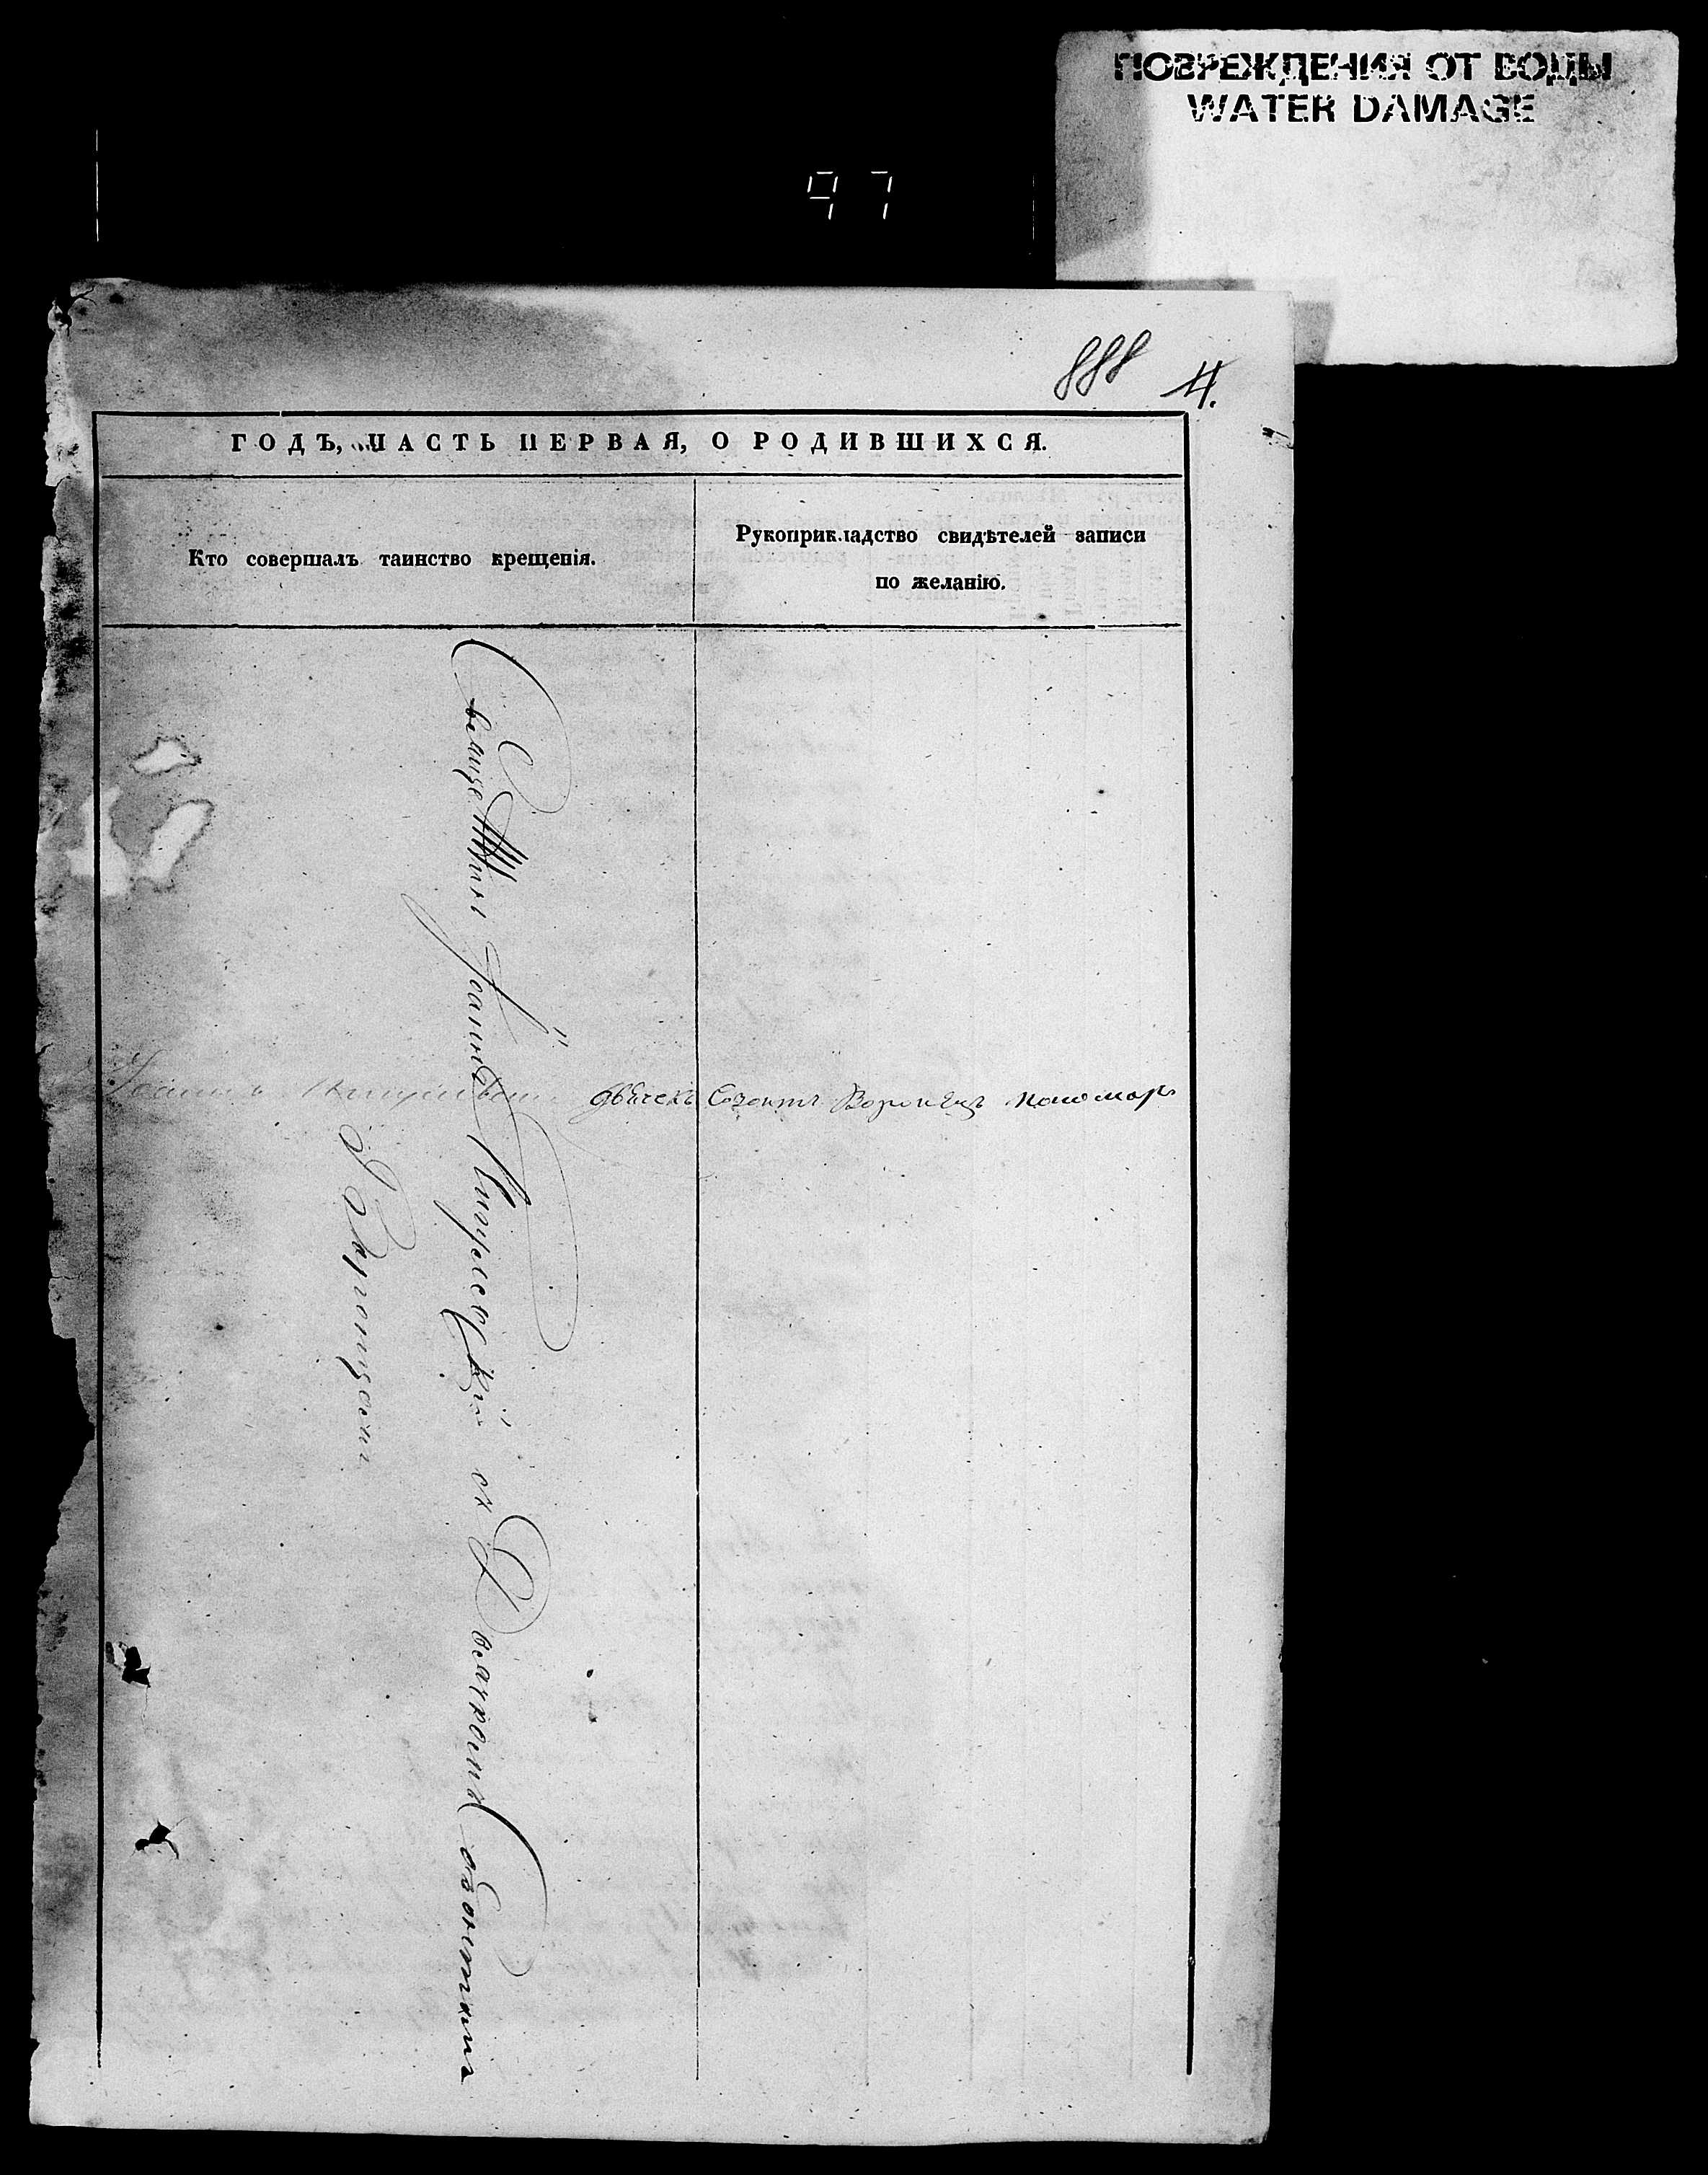 ПОВРЕЖДЕНИЯ ОТ ВОДЫ
WATER DAMAGE
97
888 4.
ГОДЪ, ЧАСТЬ ПЕРВАЯ, О РОДИВШИХСЯ.
Кто совершалъ таинство крещенія.
Рукоприкладство свидѣтелей записи
по желанію.
Священникъ Іоаннъ съ
дьячекъ Созонтъ Воронецъ пономарь